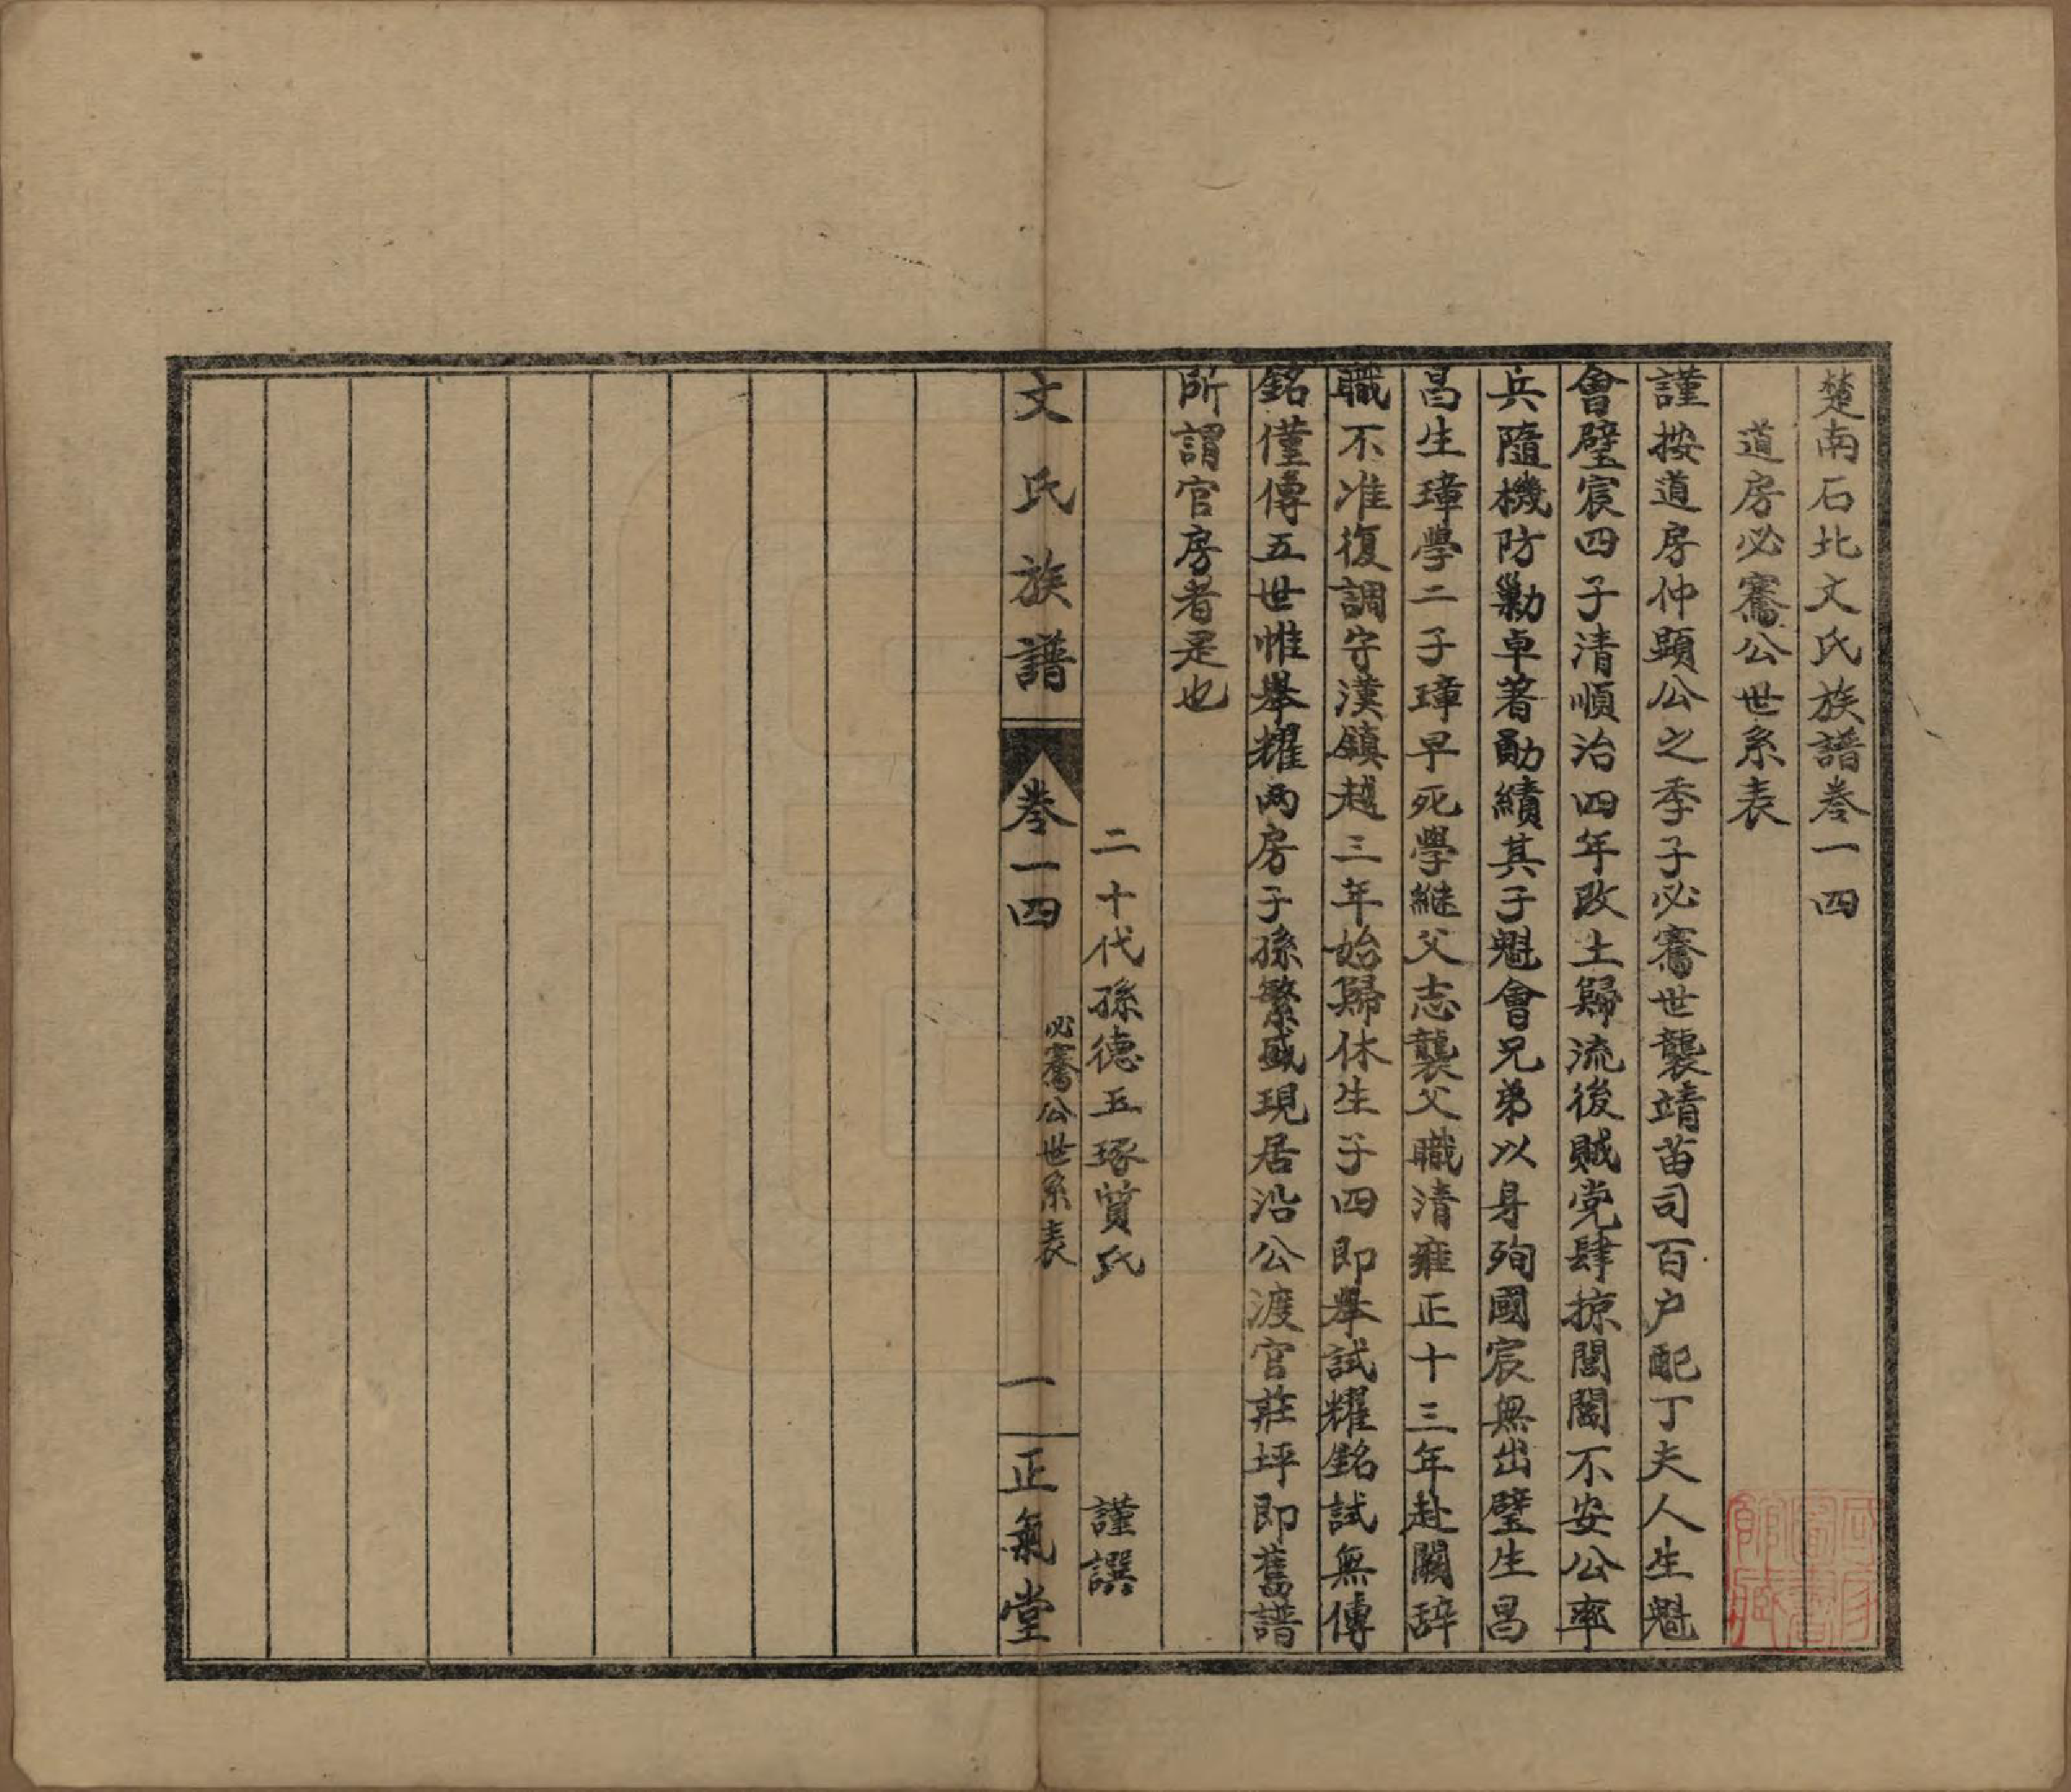 楚南石北文氏族譜卷一四
道房必騫公世系表
謹按道房仲顕公之季子必騫世襲靖苗司百户配丁夫人生魁
會璧宸四子清順治四年改土歸流後賊党肆掠閭閻不安公率
兵隨機防勦卓著勛績其子魁會兄弟以身殉國宸無出璧生昌
昌生璋學二子璋早死學継父志襲父職清雍正十三年赴闕辞
職不准復調守漢鎮越三年始歸休生子四即舉試耀銘試無傳
銘僅傳五世惟舉耀両房子孫繁盛現居沿公渡官莊坪即舊譜
所謂官房者是也
二十代孫德玉琢質氏 謹譔
文氏族譜 卷一四 必騫公世系表 一 正氣堂
國家圖書館藏